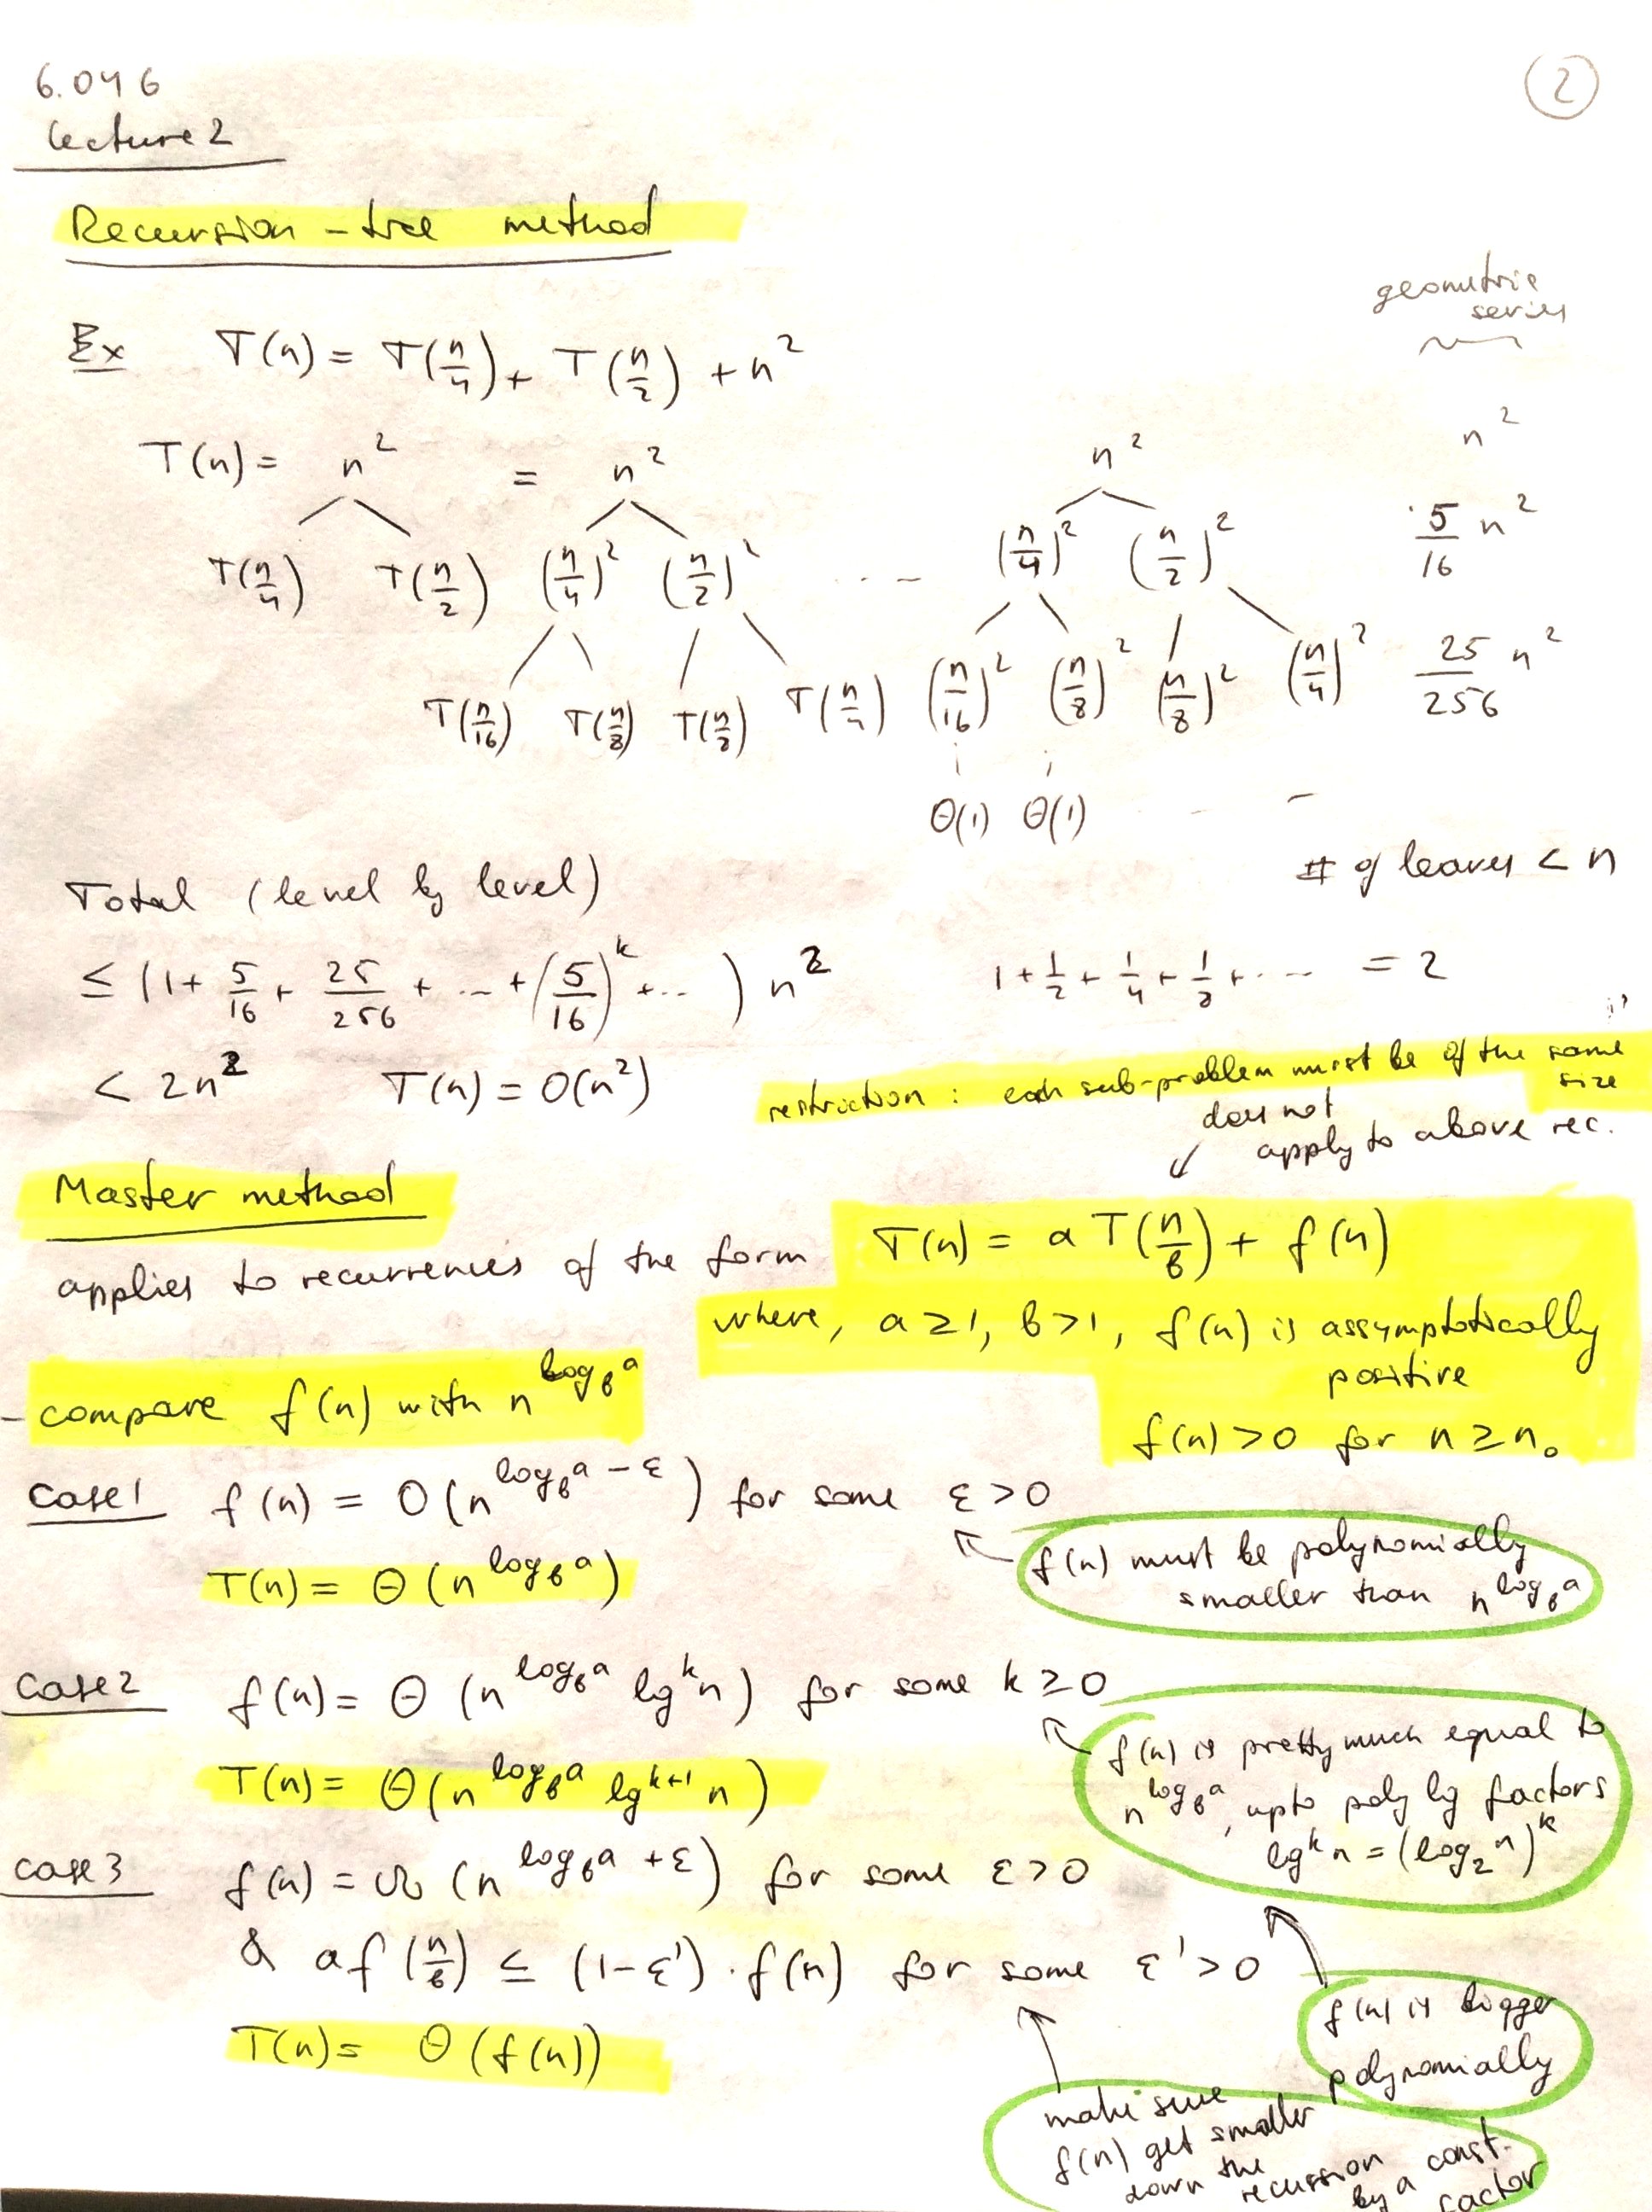 6.046
②
Lecture 2
Recursion-tree method
geometric
series
Ex T(n) = T(n/4) + T(n/2) + n²
T(n) = n² = n² n² n²
T(n/4) T(n/2) (n/4)² (n/2)² ... (n/4)² (n/2)² 5/16 n²
T(n/16) T(n/8) T(n/8) T(n/4) (n/16)² (n/8)² (n/8)² (n/4)² 25/256 n²
Θ(1) Θ(1)
# of leaves < n
Total (level by level)
≤ (1 + 5/16 + 25/256 + ... + (5/16)^k + ...) n² 1 + 1/2 + 1/4 + 1/8 + ... = 2
< 2n² T(n) = O(n²)
restriction: each sub-problem must be of the same
size
does not
apply to above rec.
Master method
applies to recurrences of the form T(n) = a T(n/b) + f(n)
where, a ≥ 1, b > 1, f(n) is assymptotically
positive
f(n) > 0 for n ≥ n₀
- compare f(n) with n^(log_b a)
Case 1 f(n) = O(n^(log_b a - ε)) for some ε > 0
f(n) must be polynomially
smaller than n^(log_b a)
T(n) = Θ(n^(log_b a))
Case 2 f(n) = Θ(n^(log_b a) lg^k n) for some k ≥ 0
f(n) is pretty much equal to
n^(log_b a), upto poly lg factors
lg^k n = (log₂ n)^k
T(n) = Θ(n^(log_b a) lg^(k+1) n)
case 3 f(n) = Ω(n^(log_b a + ε)) for some ε > 0
& a f(n/b) ≤ (1-ε') · f(n) for some ε' > 0
f(n) is bigger
polynomially
T(n) = Θ(f(n))
make sure
f(n) get smaller
down the recursion
by a const.
factor